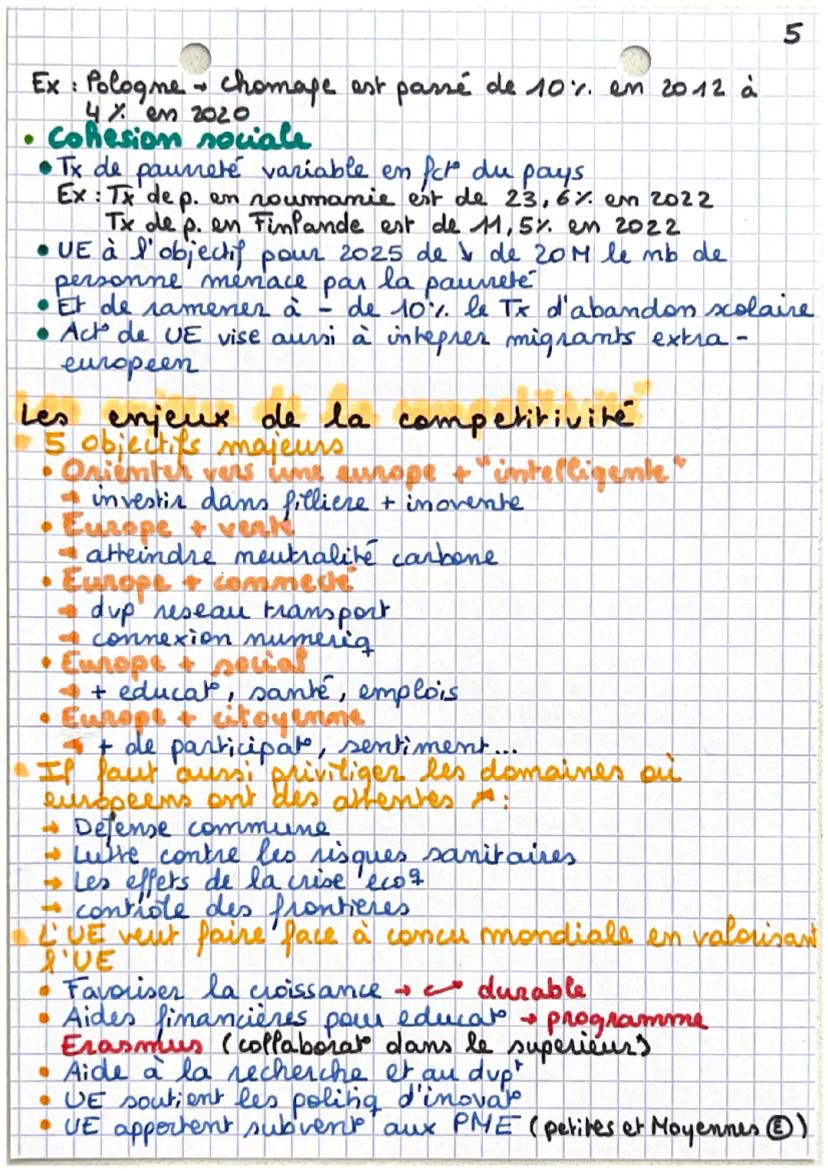 5
Ex : Pologne → chomage est passé de 10% en 2012 à
4 % en 2020
• Cohesion sociale
• Tx de pauvreté variable en fct° du pays
Ex : Tx de p. en roumanie est de 23,6% en 2022
Tx de p. en Finlande est de 11,5% en 2022
• UE à l'objectif pour 2025 de ↘ de 20M le nb de
personne menace par la pauvreté
• Et de ramener à - de 10% le Tx d'abandon scolaire
• Act° de UE vise aussi à intégrer migrants extra-
européen
Les enjeux de la competitivité
• 5 objectifs majeurs
• Orienter vers une europe + "intelligente"
→ investir dans filliere + inovente
• Europe + verte
→ atteindre neutralité carbone
• Europe + connecté
→ dvp reseau transport
→ connexion numeriq
• Europe + social
→ + educat°, santé, emplois
• Europe + citoyenne
→ + de participat°, sentiment...
• Il faut aussi priviliger les domaines où
européens ont des attentes ↗ :
→ Défense commune
→ Lutte contre les risques sanitaires
→ Les effets de la crise éco
→ contrôle des frontières
• L'UE veut faire face à concu mondiale en valorisant
l'UE
• Favoriser la croissance → durable
• Aides financières pour educat° → programme
Erasmus (collaborat° dans le superieur)
• Aide à la recherche et au dvpt
• UE soutient les politiq d'inovat°
• UE apportent subvent° aux PME (petites et Moyennes Ⓔ)